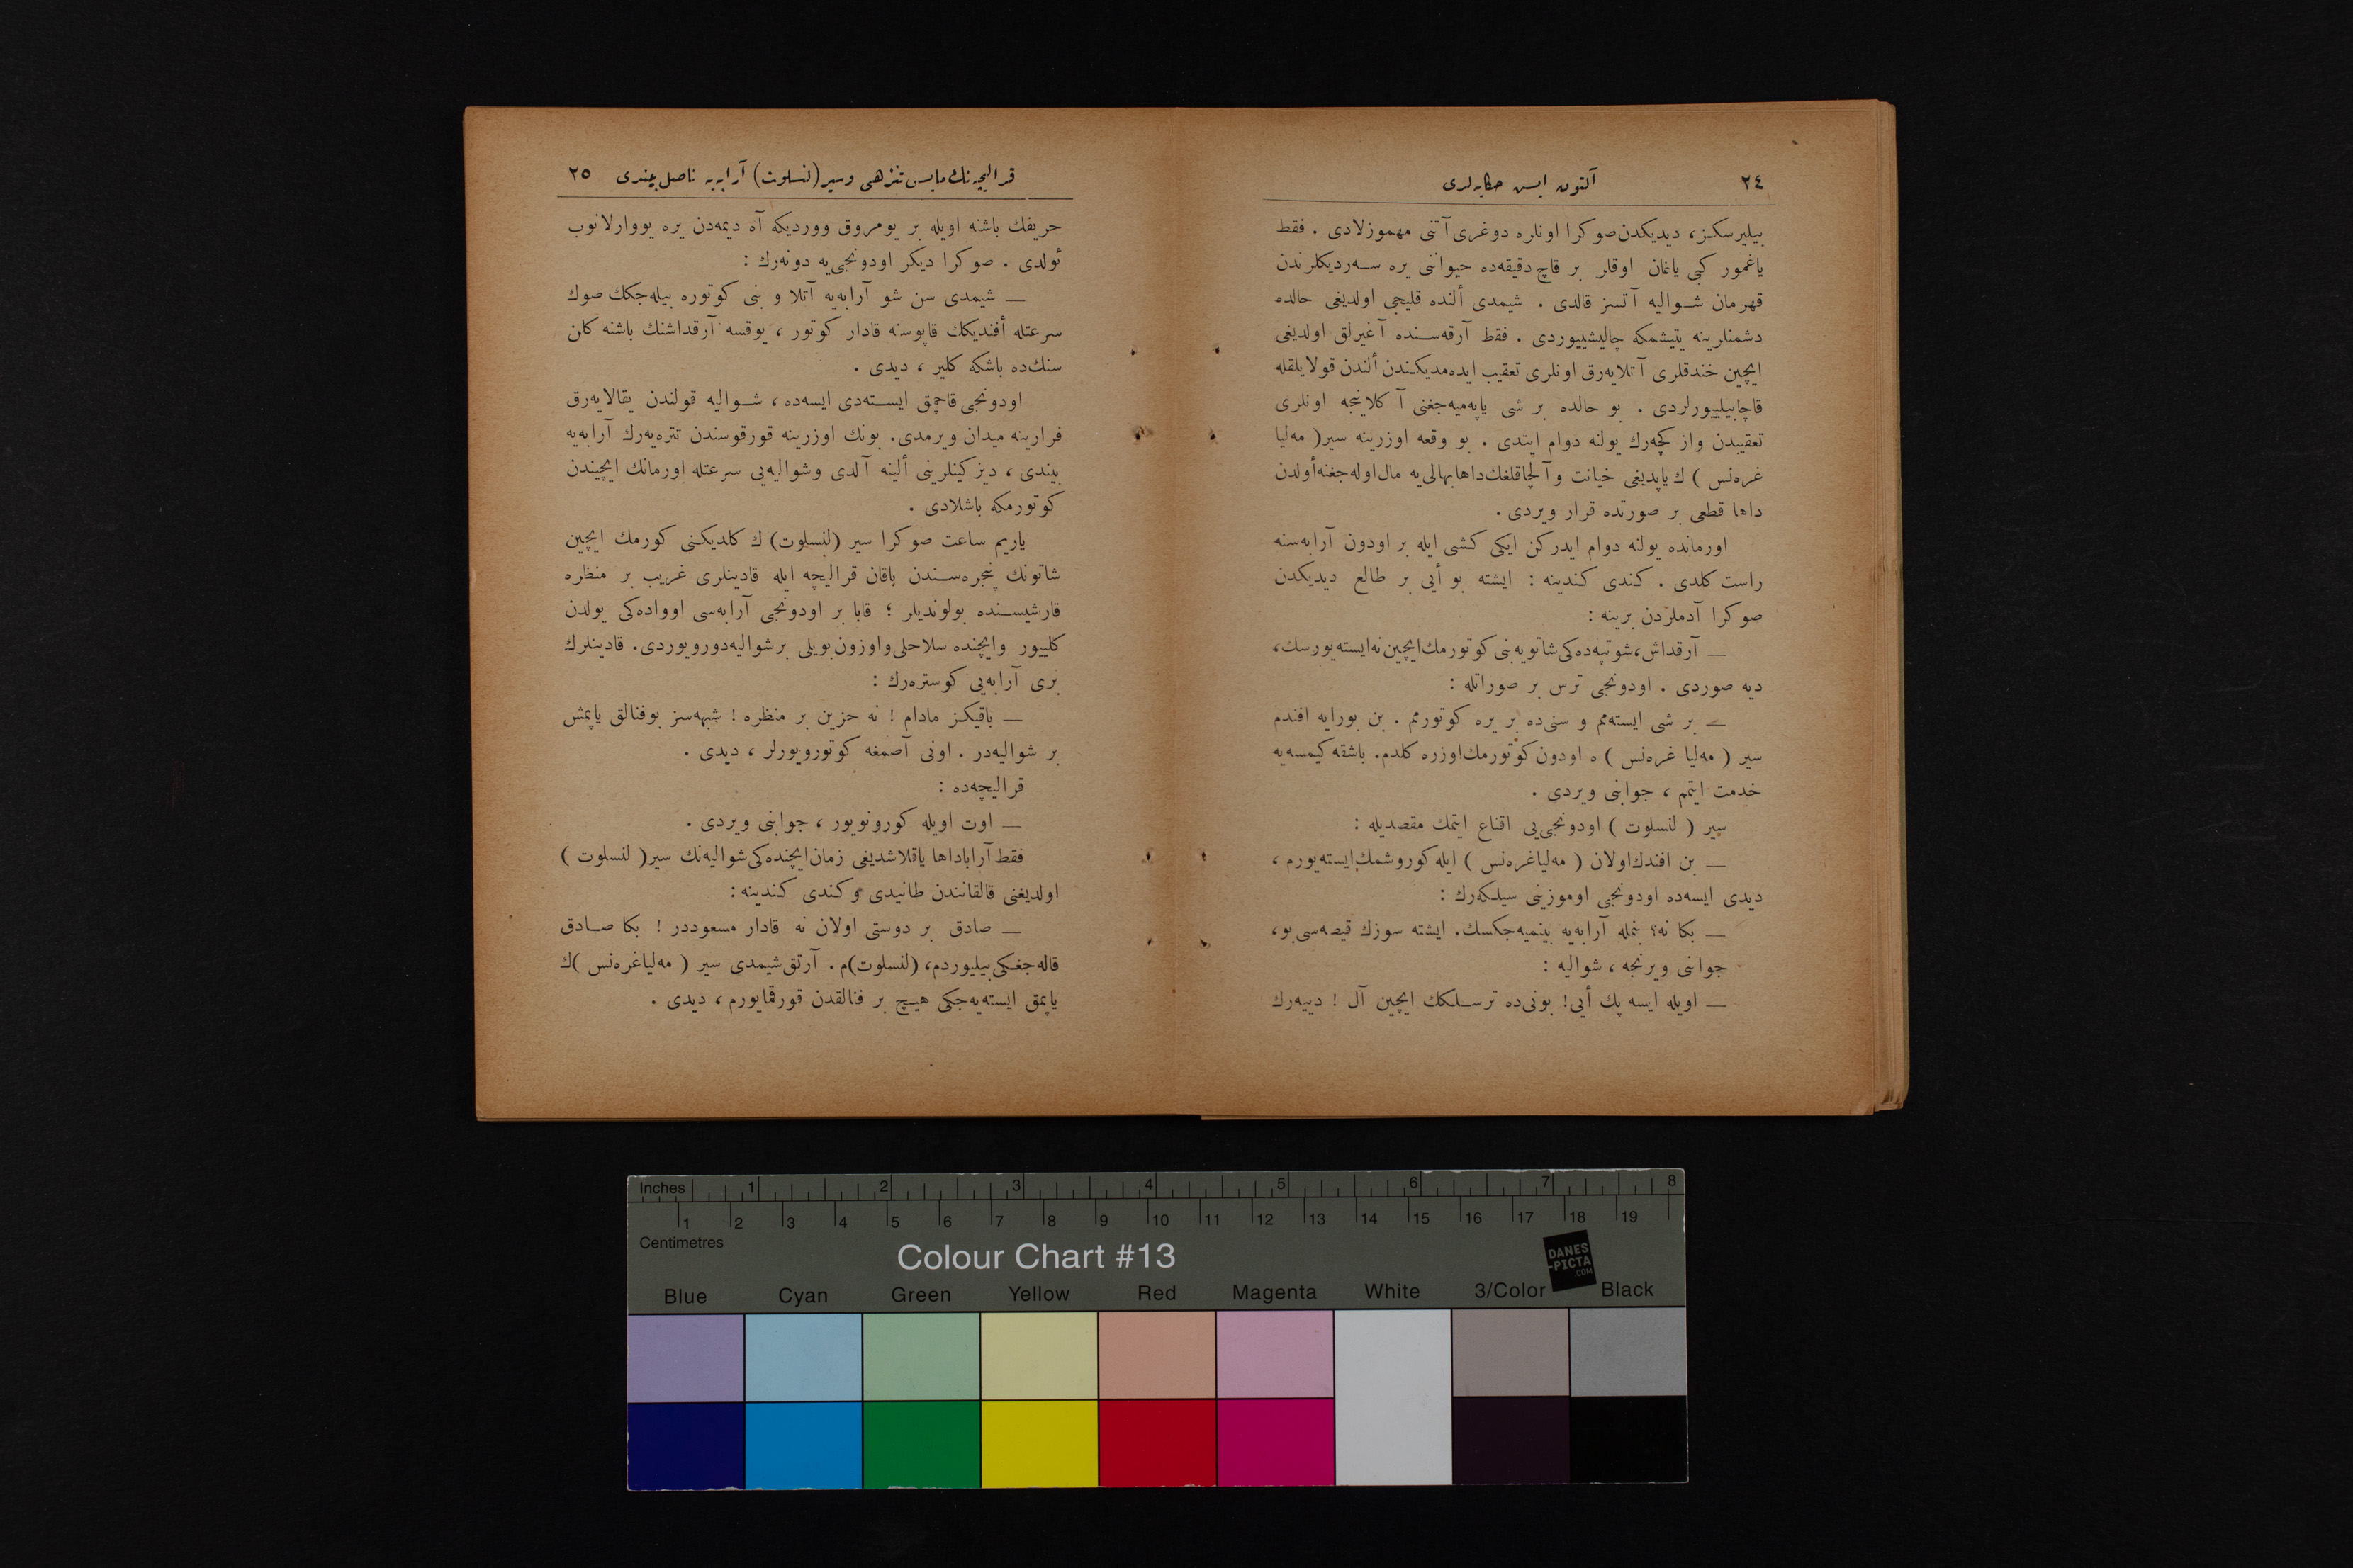 ٢٤ آلتون ايس حكايه‌لرى
بيليرسكز، ديديكدن صوكرا اونلره دوغرى آتنى مهموزلادى . فقط
ياغمور كبى ياغان اوقلر بر قاچ دقيقه‌ده حيواننى يره سـه‌رديكلرندن
قهرمان شـواليه آتسز قالدى . شيمدى ألنده قليجى اولديغى حالده
دشمنلرينه يتيشمكه چاليشييوردى . فقط آرقه‌سـنده آغيرلق اولديغى
ايچين خندقلرى آتلايه‌رق اونلرى تعقيب ايده‌مديكندن ألندن قولايلقله
قاچابيلييورلردى . بو حالده بر شى ياپه‌ميه‌جغنى آكلاينجه اونلرى
تعقيبدن واز كچه‌رك يولنه دوام ايتدى . بو وقعه اوزرينه سير( مه‌ليا
غره‌نس ) ك ياپديغى خيانت و آلچاقلغك داها بهالى‌يه مال اوله‌جغنه أولدن
داها قطعى بر صورتده قرار ويردى .
اورمانده يولنه دوام ايدركن ايكى كشى ايله بر اودون آرابه‌سنه
راست كلدى . كندى كندينه : ايشته بو أيى بر طالع ديديكدن
صوكرا آدملردن برينه :
— آرقداش، شو تپه‌ده‌كى شاتويه بنى كوتورمك ايچين نه ايسته‌يورسك،
ديه صوردى . اودونجى ترس بر صوراتله :
— بر شى ايسته‌مم و سنى‌ده بر يره كوتورمم . بن بورايه افندم
سير ( مه‌ليا غره‌نس ) ه اودون كوتورمك اوزره كلدم. باشقه كيمسه‌يه
خدمت ايتمم ، جوابنى ويردى .
سير ( لنسلوت ) اودونجى‌يى اقناع ايتمك مقصديله :
— بن افندك اولان ( مه‌ليا غره‌نس ) ايله كوروشمك ايسته‌يورم ،
ديدى ايسه‌ده اودونجى اوموزينى سيلكه‌رك :
— بكا نه؟ بنمله آرابه‌يه بينميه‌جكسك. ايشته سوزك قيصه‌سى بو،
جوابنى ويرنجه ، شواليه :
— اويله ايسه پك أيى! بونى‌ده ترسـلكك ايچين آل ! دييه‌رك
قراليچه‌نك مايس تنزهى و سير (لنسلوت) آرابه‌يه ناصل بيندى ٢٥
حريفك باشنه اويله بر يومروق ووردیكه آه ديمه‌دن يره يووارلانوب
ئولدى . صوكرا ديكر اودونجى‌يه دونه‌رك :
— شيمدى سن شو آرابه‌يه آتلا و بنى كوتوره بيله‌جكك صوك
سرعتله أفنديكك قاپوسنه قادار كوتور ، يوقسه آرقداشنك باشنه كلن
سنك‌ده باشكه كلير ، ديدى .
اودونجى قاچمق ايسـته‌دى ايسه‌ده ، شـواليه قولندن يقالايه‌رق
فرارينه ميدان ويرمدى. بونك اوزرينه قورقوسندن تتره‌يه‌رك آرابه‌يه
بيندى ، ديزكينلرينى ألينه آلدى و شواليه‌يى سرعتله اورمانك ايچيندن
كوتورمكه باشلادى .
ياريم ساعت صوكرا سير (لنسلوت) ك كلديكنى كورمك ايچين
شاتونك پنجره‌سـندن باقان قراليچه ايله قادينلرى غريب بر منظره
قارشيسـنده بولونديلر ؛ قابا بر اودونجى آرابه‌سى اوواده‌كى يولدن
كلييور و ايچنده سلاحلى و اوزون بويلى بر شواليه دورويوردى. قادينلرك
برى آرابه‌يى كوستره‌رك :
— باقيكز مادام ! نه حزين بر منظره ! شبهه‌سز بو فنالق ياپمش
بر شواليه‌در . اونى آصمغه كوتورويورلر ، ديدى .
قراليچه‌ده :
— اوت اويله كورونويور ، جوابنى ويردى .
فقط آرابا داها ياقلاشديغى زمان ايچنده‌كى شواليه‌نك سير( لنسلوت )
اولديغنى قالقانندن طانيدى و كندى كندينه :
— صادق بر دوستى اولان نه قادار مسعوددر ! بكا صـادق
قاله‌جغكى بيليوردم، (لنسلوت)م. آرتق شيمدى سير ( مه‌ليا غره‌نس )ك
ياپمق ايسته‌يه‌جكى هيـچ بر فنالقدن قورقمايورم ، ديدى .
Inches 1 2 3 4 5 6 7 8
1 2 3 4 5 6 7 8 9 10 11 12 13 14 15 16 17 18 19
Centimetres
Colour Chart #13
DANES
-PICTA
.COM
Blue Cyan Green Yellow Red Magenta White 3/Color Black